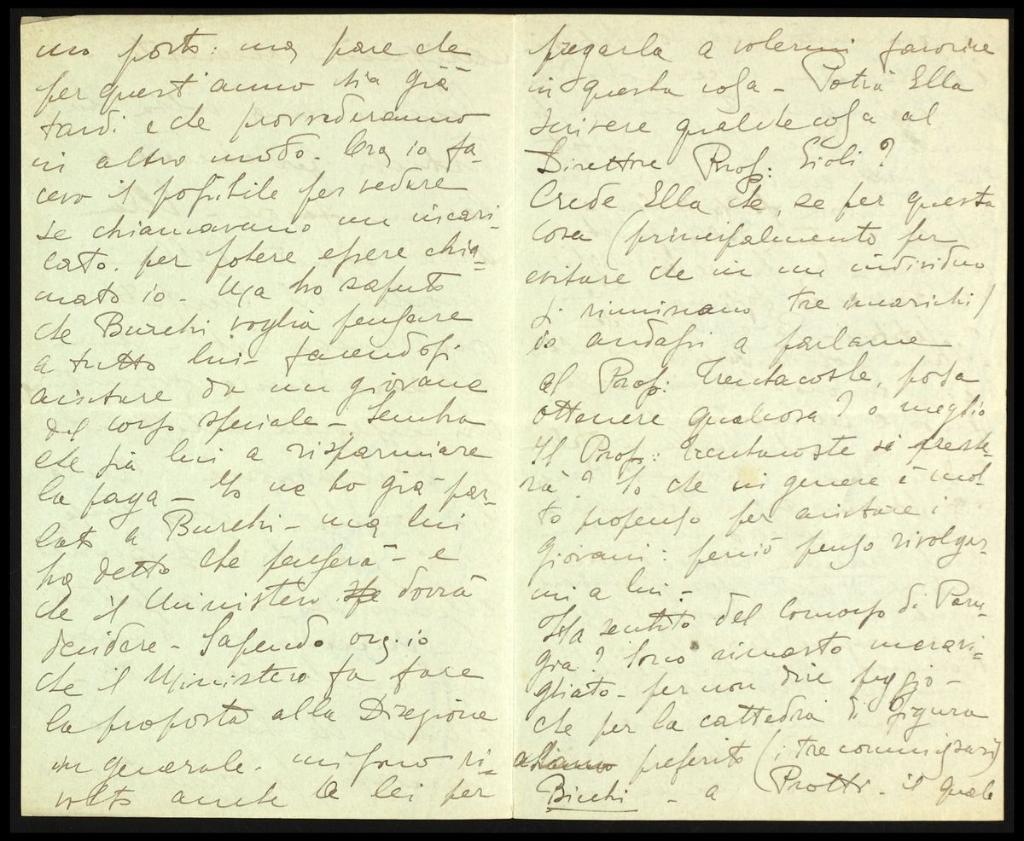 suo posto: ma pare che
per quest'anno sia già
tardi e che provvederanno
in altro modo. Ora io fa-
cevo il possibile per vedere
se chiamavano un incari-
cato. per potere essere chia=
mato io. Ma ho saputo
che Burchi voglia pensare
a tutto lui- facendosi
aiutare da un giovane
del corso speciale - Sembra
che sia lui a risparmiare
la paga - Io ne ho già par-
lato a Burchi - ma lui
ha detto che penserà - e
che il Ministero dovrà
decidere - Sapendo ora io
che il Ministero fa fare
la proposta alla Direzione
in generale. mi sono ri-
volto anche a lei per
pregarla a volermi favorire
in questa cosa - Potrà Ella
scrivere qualche cosa al
Direttore Prof: Gioli?
Crede Ella che, se per questa
cosa (principalmente per
evitare che in un individuo
si riuniscano tre incarichi)
io andassi a parlarne
al Prof: Trentacoste, possa
ottenere qualcosa? o meglio
Il Prof: Trentacoste si preste-
rà? So che in genere è mol-
to propenso per aiutare i
giovani: perciò penso rivolger-
mi a lui -
Ha sentito del Concorso di Peru-
gia? Sono rimasto meravi=
gliato - per non dire peggio -
che per la cattedra di Figura
abbiano preferito (i tre commissari)
Bicchi - a Protti - il quale